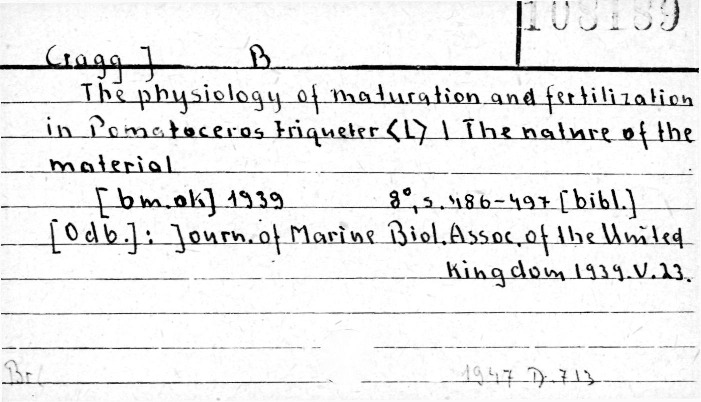 103139
Cragg J B
The physiology of maturation and fertilization
in Pomatoceros triqueter <L> I The nature of the
material
[bm.ok] 1939 8°, s. 486-497 [bibl.]
[Odb.]: Journ. of Marine Biol. Assoc. of the United
Kingdom 1939. V. 23.
1947 D. 713